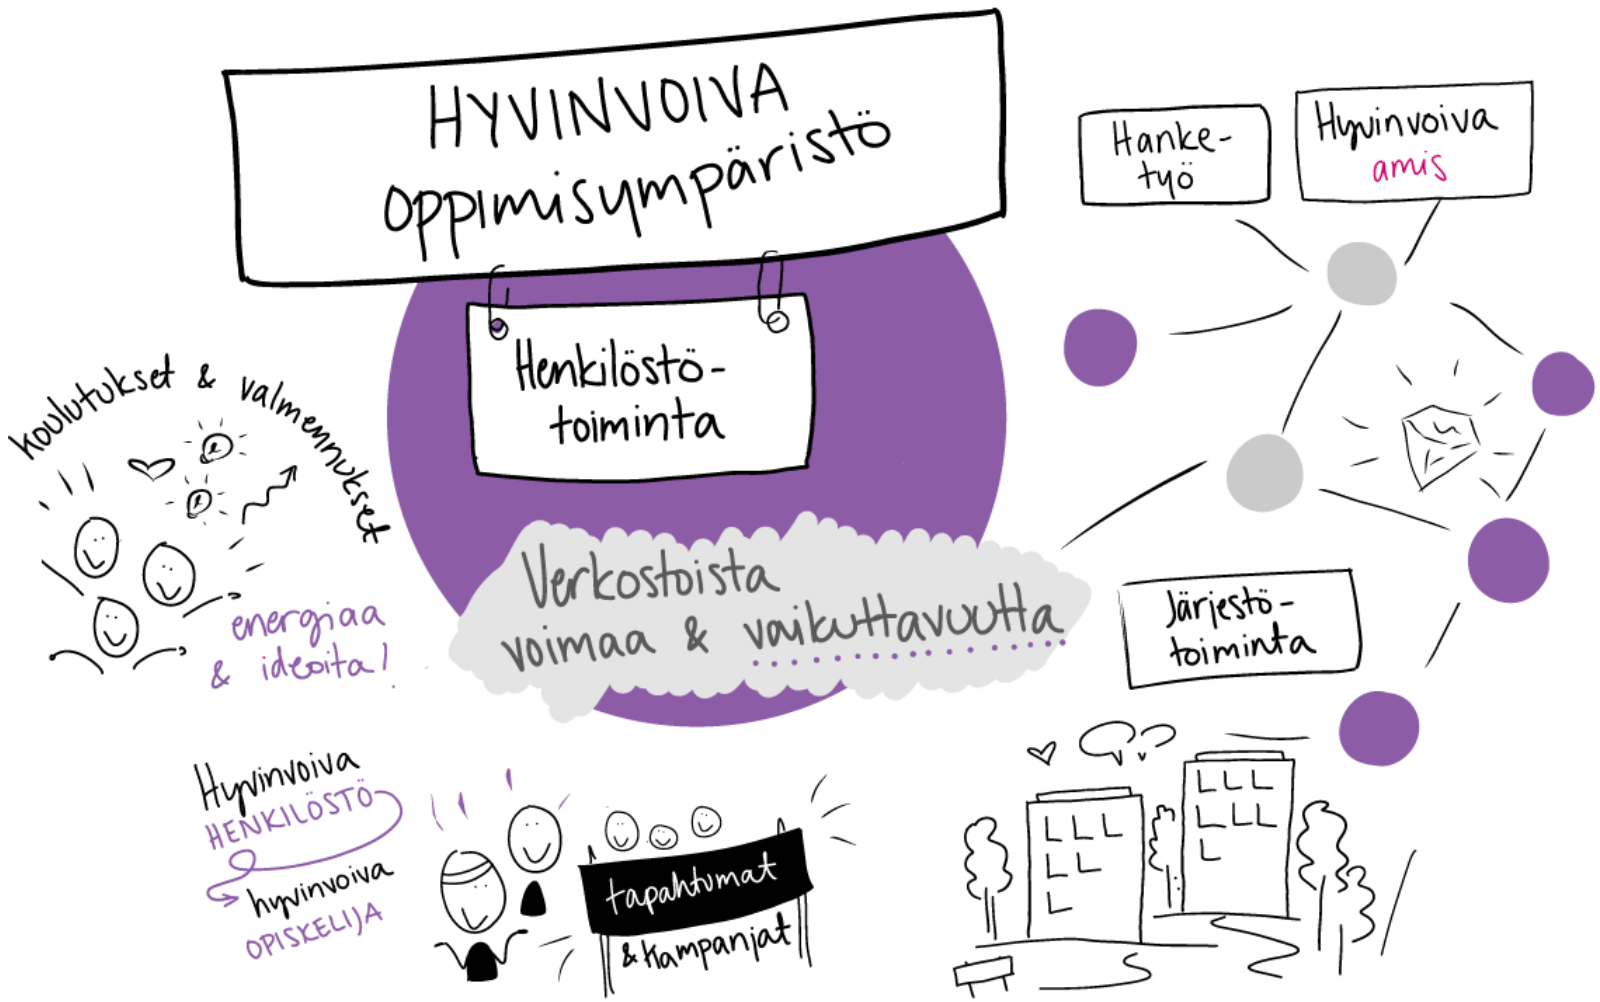 HYVINVOIVA
oppimisympäristö
Henkilöstö-
toiminta
Hanke-
työ
Hyvinvoiva
amis
koulutukset & valmennukset
energiaa
& ideoita!
Verkostoista
voimaa & vaikuttavuutta
Järjestö-
toiminta
Hyvinvoiva
HENKILÖSTÖ
hyvinvoiva
OPISKELIJA
tapahtumat
& kampanjat